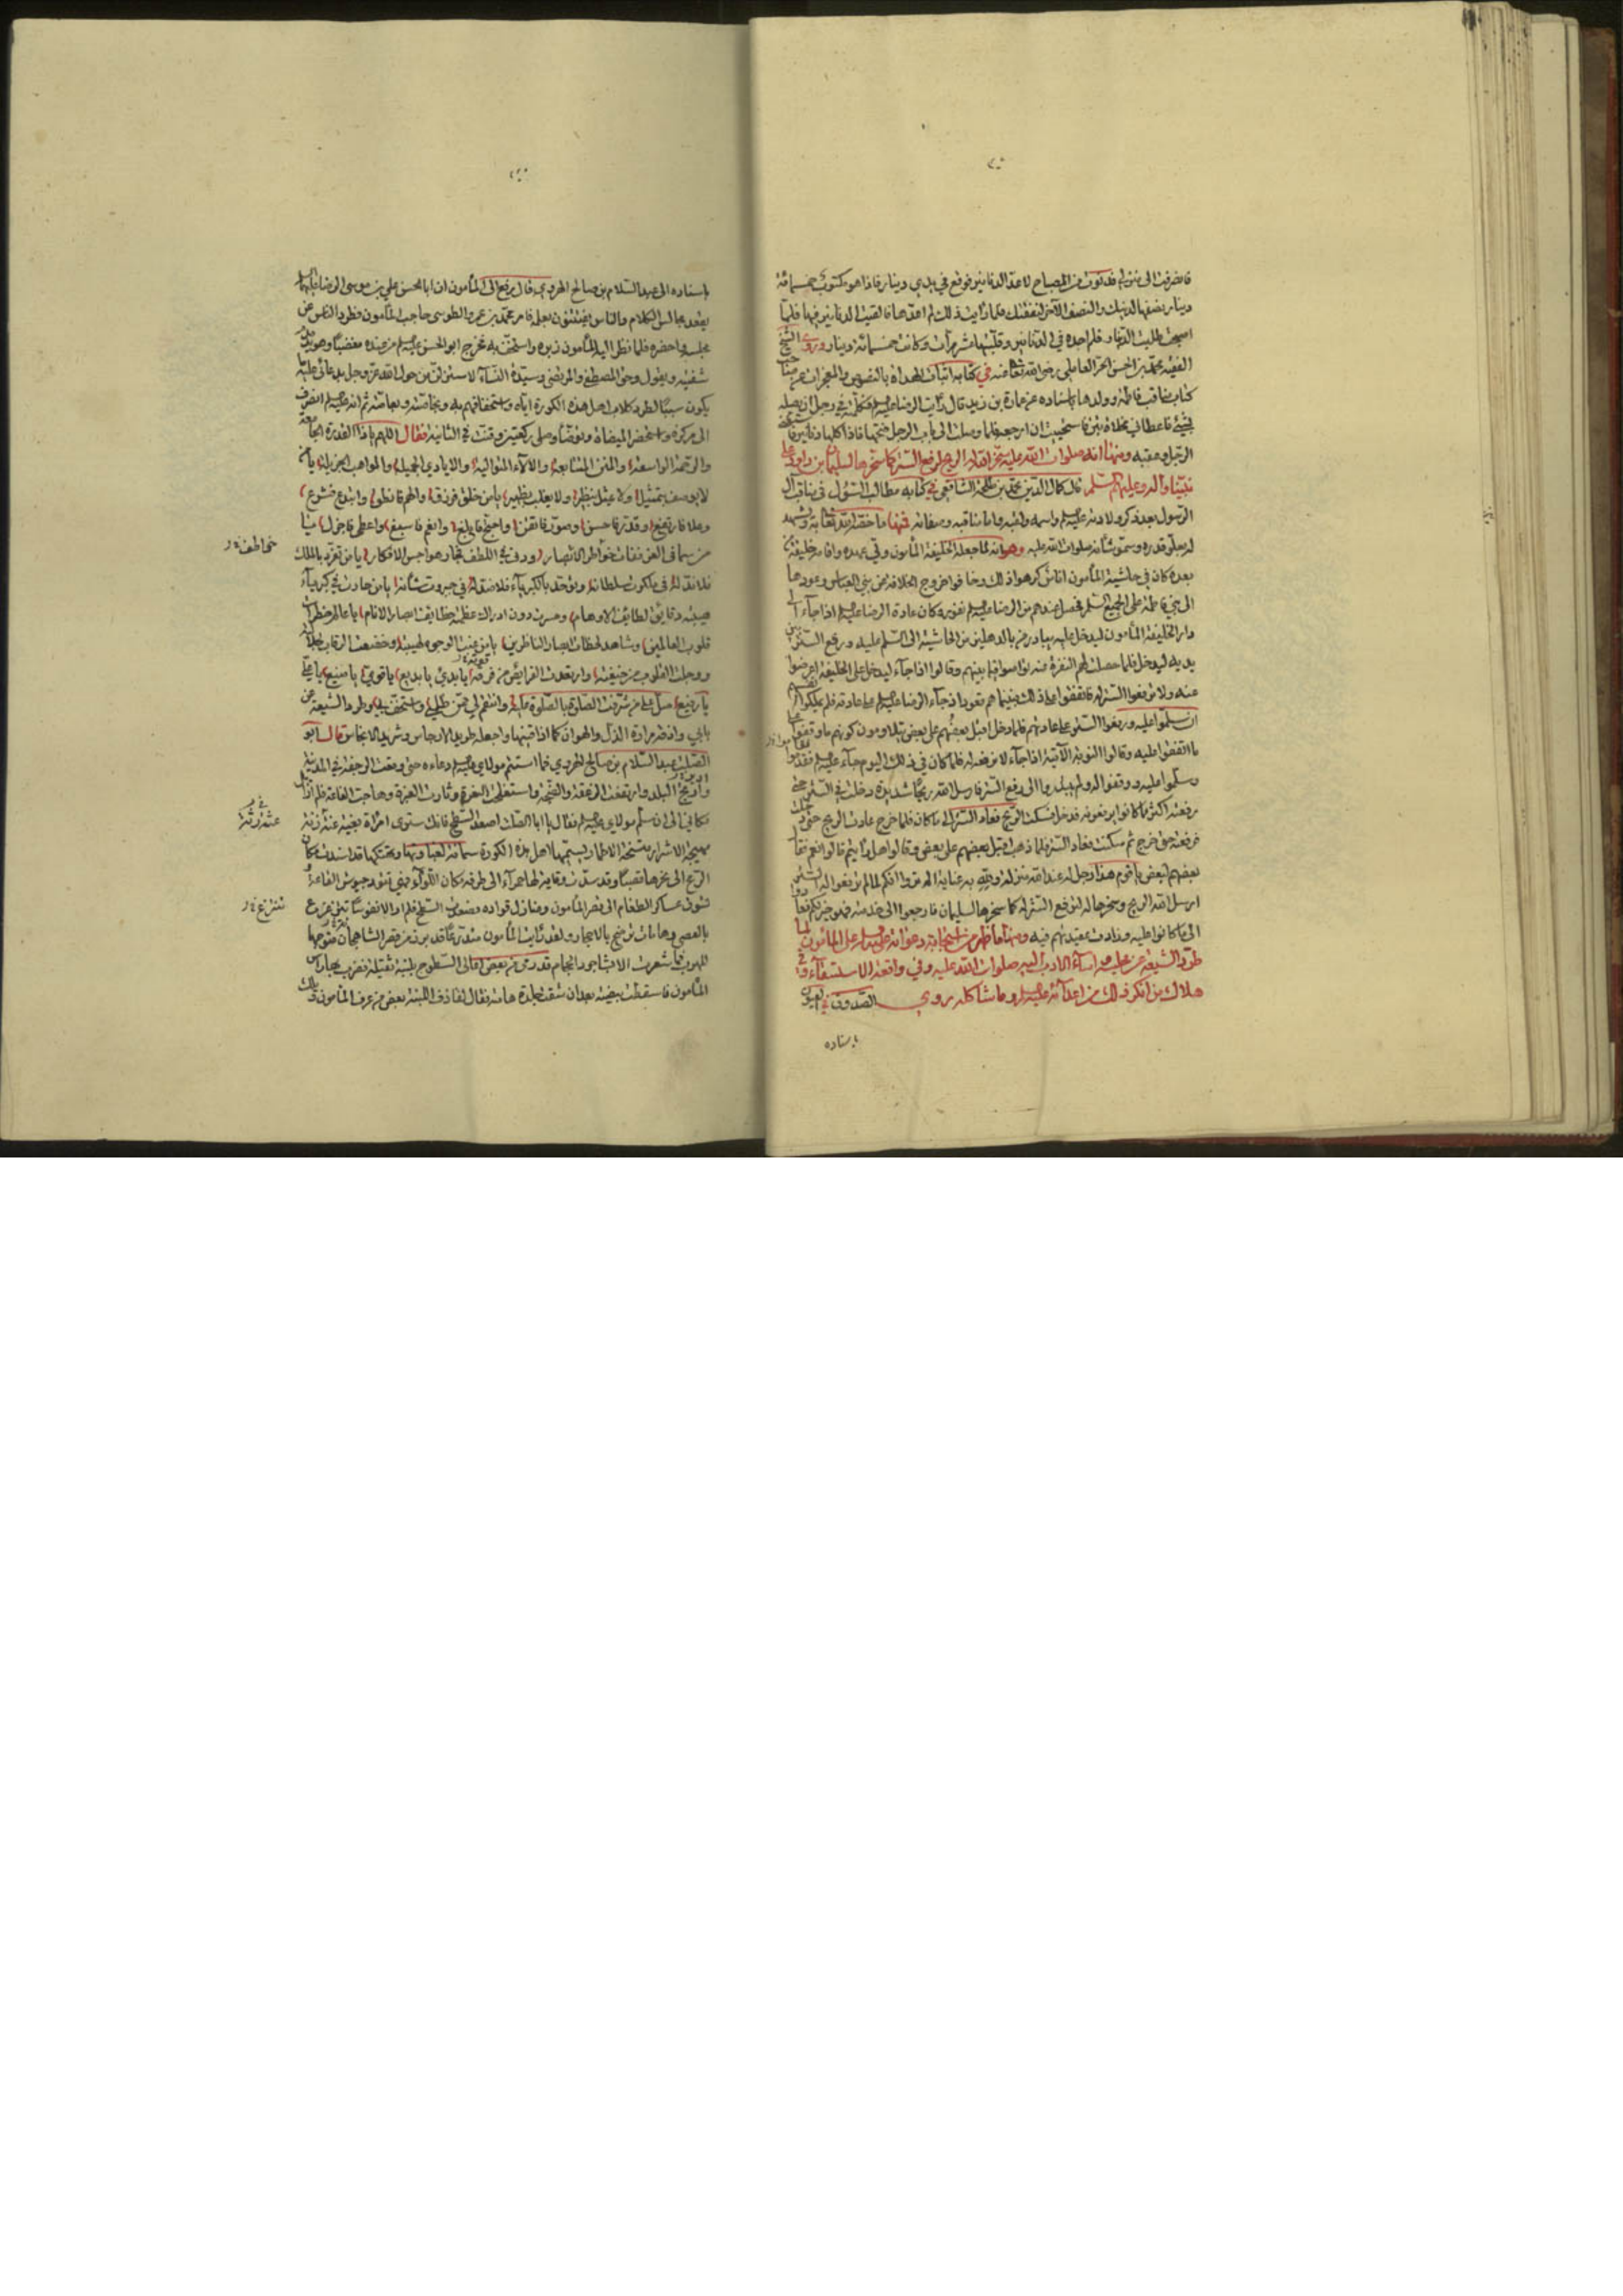 فانصرفت الى منزلي فدعوت بالمصباح لاعد الدنانير فوقع في يدي دينار فاذا هو مكتوب خمسمائة
دينار نصفها لدينك والنصف الآخر لنفقتك فلما رايت ذلك لم اعدها فالقيت الدنانير فيها فلما
اصبحت طلبت الدينار فلم اجده في الدنانير وقلبتها عشر مرات وكانت خمسمائة دينار وروى الشيخ
الفقيه محمد بن الحسن الحر العاملي رضي الله عنه في كتابه اثبات الهداة بالنصوص والمعجزات
كتاب مناقب فاطمة وولدها باسناده عن عمارة بن زيد قال رأيت الرضا عليه السلم فكلمته في رجل ان يصله
بشيئ فاعطاني مخلاة تبن فاستحييت ان اراجعه فلما وصلت الى باب الرجل فتحتها فاذا كلها دنانير
الرجل وعقبه ومنها انه صلوات الله عليه سخر الله له الريح لرفع الستر كما سخرها لسليمان بن داود على
نبينا وآله وعليهم السلم قال كمال الدين محمد بن طلحة الشافعي في كتابه مطالب السئول في مناقب آل
الرسول بعد ذكر ولادته عليه السلم واسمه ولقبه واما مناقبه وصفاته فمنها ما خصه الله تعالى به ويشهد
له بعلو قدره وسمو شأنه صلوات الله عليه وهو انه لما جعله الخليفة المأمون ولي عهده واقامه خليفة
بعده كان في حاشية المأمون اناس كرهوا ذلك وخافوا خروج الخلافة عن بني العباس وعودها
الى بني فاطمة على الجميع السلم فحصل عندهم من الرضا عليه السلم نفور وكان عادة الرضا عليه السلم اذا جاء الى
دار الخليفة المأمون ليدخل عليه يبادر من بالدهليز من الحاشية الى السلم عليه ورفع الستر بين
يديه ليدخل فلما حصلت لهم النفرة عنه تواصوا فيما بينهم وقالوا اذا جاء ليدخل على الخليفة اعرضوا
عنه ولا ترفعوا الستر له فاتفقوا على ذلك فبينما هم قعود اذ جاء الرضا عليه السلم على عادته فلم يملكوا انفسهم
ان سلموا عليه ورفعوا الستر على عادتهم فلما دخل اقبل بعضهم على بعض يتلاومون كونهم ما وقفوا على
ما اتفقوا عليه وقالوا النوبة الآتية اذا جاء لا نرفعه له فلما كان في ذلك اليوم جاء عليه السلم فقاموا
وسلموا عليه ووقفوا له ولم يبتدروا الى رفع الستر فارسل الله ريحا شديدة دخلت في الستر حتى
رفعته اكثر مما كانوا يرفعونه فدخل فسكنت الريح فعاد الستر الى ما كان فلما خرج عادت الريح حتى دخلت
فرفعته حتى خرج ثم سكنت فعاد الستر فلما ذهب اقبل بعضهم على بعض وقالوا هل رأيتم قالوا نعم فقال
بعضهم لبعض يا قوم هذا رجل له عند الله منزلة ولله به عناية الم تروا انكم لما لم ترفعوا له الستر
ارسل الله الريح وسخرها له لرفع الستر له كما سخرها لسليمان فارجعوا الى خدمته فهو خير لكم فعادوا
الى ما كانوا عليه وزادت عقيدتهم فيه ومنها ما ظهر من استجابة دعواته عليه السلم على المأمون لما
طرد الشيعة عن مجلسه واساء الادب اليه صلوات الله عليه وفي واقعة الاستسقاء وفي
هلاك من انكر ذلك من اعدائه عليه السلم وما شاكله روى الصدوق في العيون
باسناده
باسناده الى عبد السلام بن صالح الهروي قال رفع الى المأمون ان ابا الحسن علي بن موسى الرضا عليهما السلم
يعقد مجالس الكلام والناس يفتتنون بعلمه فامر محمد بن عمرو الطوسي حاجب المأمون فطرد الناس عن
مجلسه واحضره فلما نظر اليه المأمون زبره واستخف به فخرج ابو الحسن عليه السلم من عنده مغضبا وهو يدمدم
شفتيه ويقول وحق المصطفى والمرتضى وسيدة النساء لاستنزلن من حول الله عز وجل بدعائي عليه ما
يكون سببا لطرد كلاب اهل هذه الكورة اياه واستخفافهم به وبخاصته وعامته ثم انه عليه السلم انصرف
الى مركزه واستحضر الميضاة وتوضأ وصلى ركعتين وقنت في الثانية فقال اللهم يا ذا القدرة الجامعة
والرحمة الواسعة والمنن المتتابعة والآلاء المتوالية والايادي الجميلة والمواهب الجزيلة يا من
لا يوصف بتمثيل ولا يمثل بنظير ولا يغلب بظهير يا من خلق فرزق والهم فانطق وابتدع فشرع
وعلا فارتفع وقدر فاحسن وصور فاتقن واحتج فابلغ وانعم فاسبغ واعطى فاجزل يا
من سما في العز ففات خواطر الابصار ودنى في اللطف فجاز هواجس الافكار يا من تفرد بالملك
فلا ند له في ملكوت سلطانه وتوحد بالكبرياء فلا ضد له في جبروت شأنه يا من حارت في كبرياء
هيبته دقايق لطايف الاوهام وحسرت دون ادراك عظمته خطايف ابصار الانام يا عالم خطرات
قلوب العالمين وشاهد لحظات ابصار الناظرين يا من عنت الوجوه لهيبته وخضعت الرقاب لجلاله
ووجلت القلوب من خيفته وارتعدت الفرايص من فرقه يا بديء يا بديع يا قوي يا منيع يا علي
يا رفيع صل على من شرفت الصلوة بالصلوة عليه وانتقم لي ممن ظلمني واستخف بي وطرد الشيعة عن
بابي واذقه مرارة الذل والهوان كما اذاقنيها واجعله طريد الارجاس وشريد الانجاس قال ابو
الصلت عبد السلام بن صالح الهروي فما استتم مولاي عليه السلم دعاءه حتى وقعت الرجفة في المدينة
وارتج البلد وارتفعت الزعقة والصيحة واستفحلت النعرة وثارت الغبرة وهاجت القاعة فلم ازايل
مكاني الى ان سلم مولاي عليه السلم فقال يا ابا الصلت اصعد السطح فانك سترى امراة بغية عثة رثة
مهيجة الاشرار متسخة الاطمار يسميها اهل هذه الكورة سمانة لغباوتها وتهتكها قد اسندت مكان
الرمح الى نحرها قصبا وقد شدت وقاية لها حمراء الى طرفه مكان اللواء فهي تقود جيوش القاعة
وتسوق عساكر الطغام الى قصر المأمون ومنازل قواده فصعدت السطح فلم ار الا نفوسا تنزع
بالعصي وهامات ترضخ بالاحجار ولقد رأيت المأمون متدرعا قد برز من قصر الشاهجان متوجها
للهرب فما شعرت الا بشاجرد الحجام قد رمى من بعض اعالي السطوح بلبنة ثقيلة فضرب بها رأس
المأمون فاسقطت بيضته بعد ان شقت جلدة هامته فقال لقاذف اللبنة بعض من عرف المأمون ويلك
خواطف خ ل
عثة رثة
تنتزع خ ل